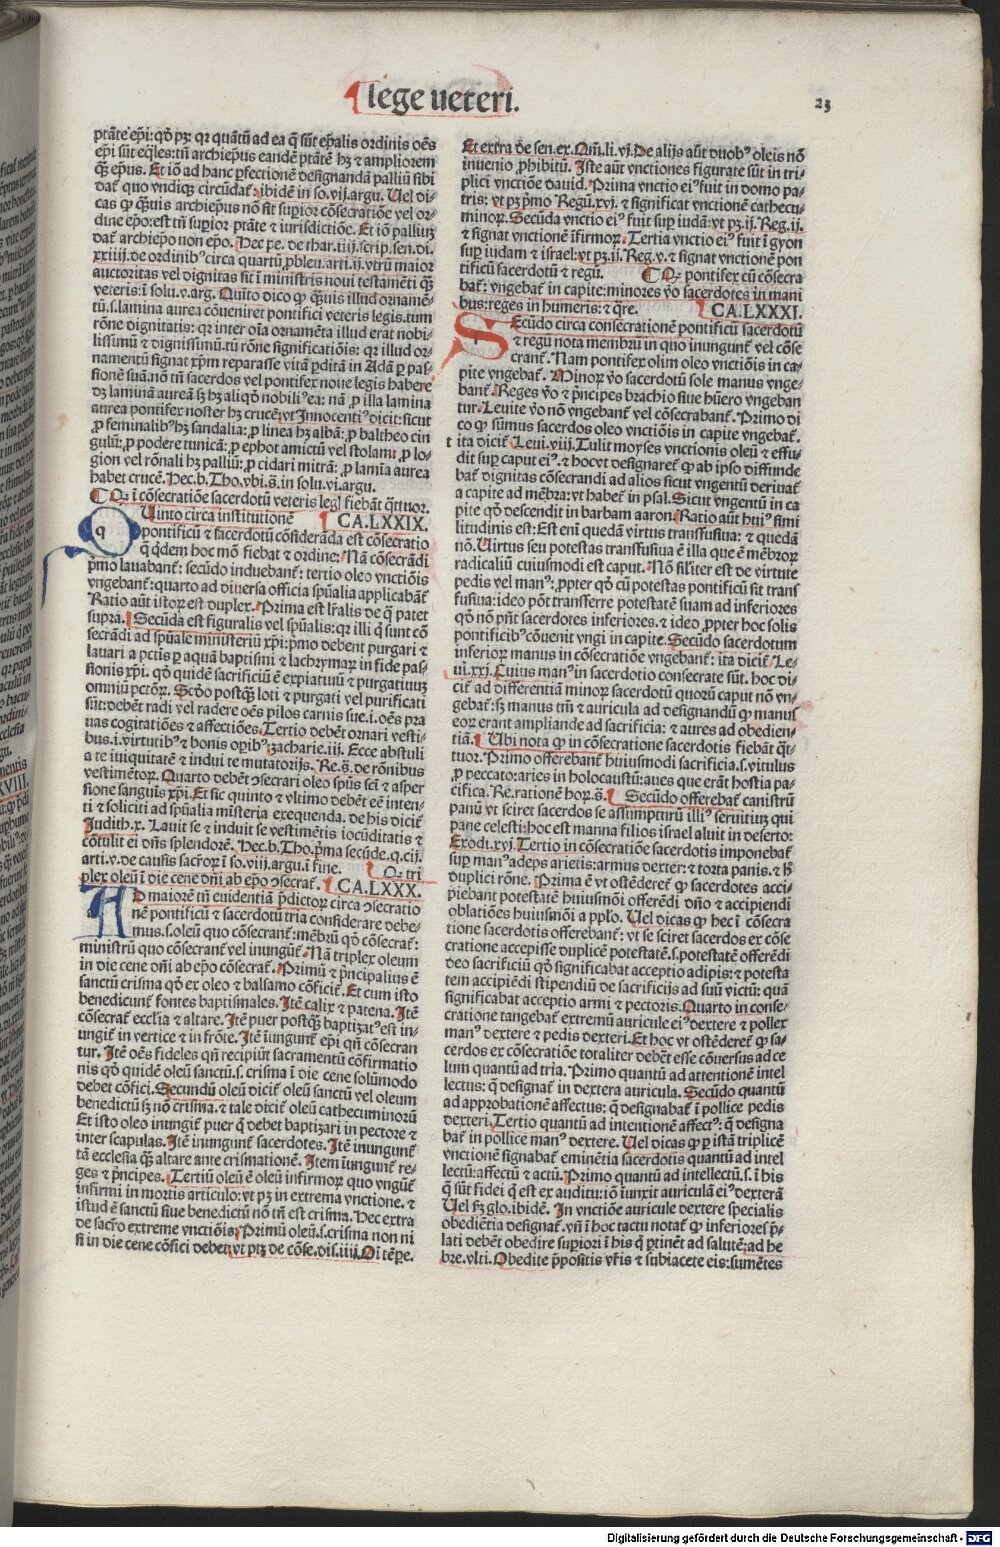 lege ueteri.
23
ptãte ep̃i: qđ pʒ: qꝛ quãtũ ad ea q̃ sũt ep̃alis ordinis oẽs
ep̃i sũt eq̃les: tñ archiep̃us eandẽ ptãtẽ hʒ ⁊ ampliorem
q̃ꝫ ep̃us. Et iõ ad hanc ꝑfectionẽ designandã palliũ sibi
dat̃ quo vndiqꝫ circũdat̃: ibidẽ in so. vij. argu. Uel di-
cas ꝙ q̃uis archiep̃us nõ sit supior cõsecratiõe vel or-
dine ep̃o: est tñ supior ptãte ⁊ iurisdictiõe. Et iõ palliuʒ
dat̃ archiep̃o non ep̃o. Hec pe. de thar. iiij. scrip. sen. di.
xxiiij. de ordinibꝰ circa quartũ ꝓbleu. arti. ij. vtrũ maior
auctoritas vel dignitas sit ĩ ministris noui testamẽti q̃ꝫ
veteris: ĩ solu. v. arg. Quĩto dico ꝙ q̃uis illud ornamẽ-
tũ. s. lamina aurea cõueniret pontifici veteris legis. tum
rõne dignitatis: qꝛ inter oĩa ornamẽta illud erat nobi-
lissimũ ⁊ dignissimũ. tũ rõne significatiõis: qꝛ illud or-
namentũ signat xp̃m reparasse vitã ꝑditã in Adã ꝑ pas-
sionẽ suã. nõ tñ sacerdos vel pontifex noue legis habere
dʒ laminã aureã sʒ hʒ aliqđ nobiliꝰ ea: nã ꝓ illa lamina
aurea pontifex noster hʒ crucẽ: vt Innocentiꝰ dicit: sicut
ꝓ feminalibꝰ hʒ sandalia: ꝓ linea hʒ albã: ꝓ baltheo cin
gulũ: ꝓ podere tunicã: ꝓ ephot amictũ vel stolam: ꝓ lo-
gion vel rõnali hʒ palliũ: ꝓ cidari mitrã: ꝓ lamĩa aurea
habet crucẽ. Hec. b. Tho. vbi. s̃. in solu. vi. argu.
¶ Qꝛ ĩ cõsecratiõe sacerdotũ veteris leg̃ fiebãt q̃ttuor.
Uinto circa institutionẽ CA. LXXIX.
pontificũ ⁊ sacerdotũ cõsiderãda est cõsecratio
q̃ q̃dem hoc mõ fiebat ⁊ ordine: Nã cõsecrãdi
p̃mo lauabant̃: secũdo induebant̃: tertio oleo vnctiõis
vngebant̃: quarto ad diuersa officia sp̃ualia applicabãt̃
Ratio aũt istoꝝ est duplex. Prima est lr̃alis de q̃ patet
supra. Secũda est figuralis vel sp̃ualis: qꝛ illi q̃ sunt cõ
secrãdi ad sp̃uale ministeriũ xp̃i: p̃mo debent purgari ⁊
lauari a pctĩs ꝑ aquã baptismi ⁊ lachrymaꝝ in fide pas-
sionis xp̃i. qđ quidẽ sacrificiũ ẽ expiatiuũ ⁊ purgatiuuʒ
omniũ pctõꝝ. Scđo postq̃ꝫ loti ⁊ purgati vel purificati
sũt: debẽt radi vel radere oẽs pilos carnis sue. i. oẽs pra
uas cogitatiões ⁊ affectiões. Tertio debẽt ornari vesti-
bus. i. virtutibꝰ ⁊ bonis opibꝰ: zacharie. iij. Ecce abstuli
a te iniquitatẽ ⁊ indui te mutatorijs. Re. s̃. de rõnibus
vestimẽtoꝝ. Quarto debẽt ↄsecrari oleo sp̃us sc̃i ⁊ asper
sione sanguis xp̃i. Et sic quinto ⁊ vltimo debẽt eẽ inten-
ti ⁊ soliciti ad sp̃ualia misteria exequenda. de his dicit̃
Judith. x. Lauit se ⁊ induit se vestimẽtis iocũditatis ⁊
cõtulit ei dñs splendorẽ. Hec. b. Tho. p̃ma secũde. q. cij.
arti. v. de causis sacr̃oꝝ ĩ so. viij. argu. ĩ fine. Qꝛ tri
plex oleũ ĩ die cene dñi ab ep̃o ↄsecrat̃. CA. LXXX.
AD maiorẽ tñ euidentiã p̃dictoꝝ circa ↄsecratio
nẽ pontificũ ⁊ sacerdotũ tria considerare debe-
mus. s. oleũ quo cõsecrant̃: mẽbrũ qđ cõsecrat̃:
ministrũ quo cõsecrant̃ vel inungũt̃. Nã triplex oleum
in die cene dñi ab ep̃o cõsecrat̃. Primũ ⁊ p̃ncipalius ẽ
sanctũ crisma qđ ex oleo ⁊ balsamo cõficit̃. Et cum isto
benedicunt̃ fontes baptismales. Itẽ calix ⁊ patena. Itẽ
cõsecrat̃ ecclĩa ⁊ altare. Itẽ puer postq̃ꝫ baptizatꝰ est in-
ungit̃ in vertice ⁊ in frõte. Itẽ ĩungunt̃ ep̃i qñ cõsecran
tur. Itẽ oẽs fideles qñ recipiũt sacramentũ cõfirmatio
nis qđ quidẽ oleũ sanctũ. s. crisma ĩ die cene solũmodo
debet cõfici. Secundũ oleũ dicit̃ oleũ sanctũ vel oleum
benedictũ sʒ nõ crisma. ⁊ tale dicit̃ oleũ cathecuminorũ
Et isto oleo inungit̃ puer q̃ debet baptizari in pectore ⁊
inter scapulas. Itẽ inungunt̃ sacerdotes. Itẽ inungunt̃
tã ecclesia q̃ꝫ altare ante crismationẽ. Item ĩungunt̃ re-
ges ⁊ p̃ncipes. Tertiũ oleũ ẽ oleũ infirmoꝝ quo vngũt̃
infirmi in mortis articulo: vt pʒ in extrema vnctione. ⁊
istud ẽ sanctũ siue benedictũ nõ tñ est crisma. Hec extra
de sacr̃o extreme vnctiõis. Primũ oleũ. s. crisma non ni
si in die cene cõfici debet: vt ptʒ de cõse. dis. iiij. Oĩ tẽpe.
Et extra de sen. ex. Qm̃. li. vj. De alijs aũt duobꝰ oleis nõ
inuenio ꝓhibitũ. Iste aũt vnctiones figurate sũt in tri-
plici vnctiõe dauid. Prima vnctio eiꝰ fuit in domo pa-
tris: vt pʒ p̃mo Regũ. xvj. ⁊ significat vnctionẽ cathecu-
minoꝝ. Secũda vnctio eiꝰ fuit suꝑ iudã: vt pʒ. ij. Reg. ij.
⁊ signat vnctionẽ ĩfirmoꝝ. Tertia vnctio eiꝰ fuit ĩ gyon
suꝑ iudam ⁊ israel: vt pʒ. ij. Reg. v. ⁊ signat vnctionẽ pon
tificũ sacerdotũ ⁊ regũ. ¶ Qꝛ pontifex cũ cõsecra
bat̃: vngebat̃ in capite: minores ṽo sacerdotes in mani
bus: reges in humeris: ⁊ q̃re. CA. LXXXI.
SEcũdo circa consecrationẽ pontificũ sacerdotũ
⁊ regũ nota membrũ in quo inungunt̃ vel cõse
crant̃. Nam pontifex olim oleo vnctiõis in ca-
pite vngebat̃. Minoꝝ ṽo sacerdotũ sole manus vnge-
bant̃. Reges ṽo ⁊ p̃ncipes brachio siue hũero vngeban
tur. Leuite ṽo nõ vngebant̃ vel cõsecrabant̃. Primo di
co ꝙ sũmus sacerdos oleo vnctiõis in capite vngebat̃.
ita dicit̃ Leui. viij. Tulit moyses vnctionis oleũ ⁊ effu-
dit suꝑ caput eiꝰ. ⁊ hoc vt designaret̃ ꝙ ab ipso diffunde
bat̃ dignitas cõsecrandi ad alios sicut vngentũ deriuat̃
a capite ad mẽbra: vt habet̃ in psal. Sicut vngentũ in ca
pite qđ descendit in barbam aaron. Ratio aũt huiꝰ simi
litudinis est: Est enĩ quedã virtus transfusiua: ⁊ quedã
nõ. Uirtus seu potestas transfusiua ẽ illa que ẽ mẽbroꝝ
radicaliũ cuiusmodi est caput. Nõ sil̃iter est de virtute
pedis vel manꝰ: ꝓpter qđ cũ potestas pontificũ sit trans
fusiua: ideo põt transferre potestatẽ suam ad inferiores
qđ nõ pñt sacerdotes inferiores. ⁊ ideo ꝓpter hoc solis
pontificibꝰ cõuenit vngi in capite. Secũdo sacerdotum
inferioꝝ manus in cõsecratiõe vngebant̃: ita dicit̃. Le-
ui. xxj. Cuius manꝰ in sacerdotio consecrate sũt. hoc di-
cit̃ ad differentiã minoꝝ sacerdotũ quorũ caput nõ vn-
gebat̃: sʒ manus tm̃ ⁊ auricula ad designandũ ꝙ manus
eoꝝ erant ampliande ad sacrificia: ⁊ aures ad obedien-
tiã. Ubi nota ꝙ in cõsecratione sacerdotis fiebãt q̃t
tuor. Primo offerebant̃ huiusmodi sacrificia. s. vitulus
ꝓ peccato: aries in holocaustũ: aues que erãt hostia pa-
cifica. Re. rationẽ hoꝝ. s̃. Secũdo offerebat̃ canistrũ
panũ vt sciret sacerdos se assumpturũ illiꝰ seruitiuʒ qui
pane celesti: hoc est manna filios israel aluit in deserto:
Exodi. xvj. Tertio in cõsecratiõe sacerdotis imponebat̃
suꝑ manꝰ adeps arietis: armus dexter: ⁊ torta panis. ⁊ h̃
duplici rõne. Prima ẽ vt ostẽderet̃ ꝙ sacerdotes acci-
piebant potestatẽ huiusmõi offerẽdi dño ⁊ accipiendi
oblatiões huiusmõi a pplo. Uel dicas ꝙ hec ĩ cõsecra
tione sacerdotis offerebant̃: vt se sciret sacerdos ex cõse
cratione accepisse duplicẽ potestatẽ. s. potestatẽ offerẽdi
deo sacrificiũ qđ significabat acceptio adipis: ⁊ potesta
tem accipiẽdi stipendiũ de sacrificijs ad suũ victũ: quã
significabat acceptio armi ⁊ pectoris. Quarto in conse-
cratione tangebat̃ extremũ auricule eiꝰ dextere ⁊ pollex
manꝰ dextere ⁊ pedis dexteri. Et hoc vt ostẽderet̃ ꝙ sa-
cerdos ex cõsecratiõe totaliter debet esse cõuersus ad ce
lum quantũ ad tria. Primo quantũ ad attentionẽ intel
lectus: q̃ designat̃ in dextera auricula. Secũdo quantũ
ad approbationẽ affectus: q̃ designabat̃ ĩ pollice pedis
dexteri. Tertio quantũ ad intentionẽ affectꝰ: q̃ designa
bat̃ in pollice manꝰ dextere. Uel dicas ꝙ ꝑ istã triplicẽ
vnctionẽ signabat̃ eminẽtia sacerdotis quantũ ad intel
lectũ: affectũ ⁊ actũ. Primo quantũ ad intellectũ. s. ĩ his
q̃ sũt fidei q̃ est ex auditu: iõ ĩunxit auriculã eiꝰ dexterã
Uel sʒ glo. ibidẽ. In vnctiõe auricule dextere specialis
obediẽtia designat̃. vñ ĩ hoc tactu notat̃ ꝙ inferiores p̃-
lati debẽt obedire supiori ĩ his q̃ ꝑtinẽt ad salutẽ: ad he
bre. vlti. Obedite p̃positis vr̃is ⁊ subiacete eis: sumẽtes
Digitalisierung gefördert durch die Deutsche Forschungsgemeinschaft - DFG